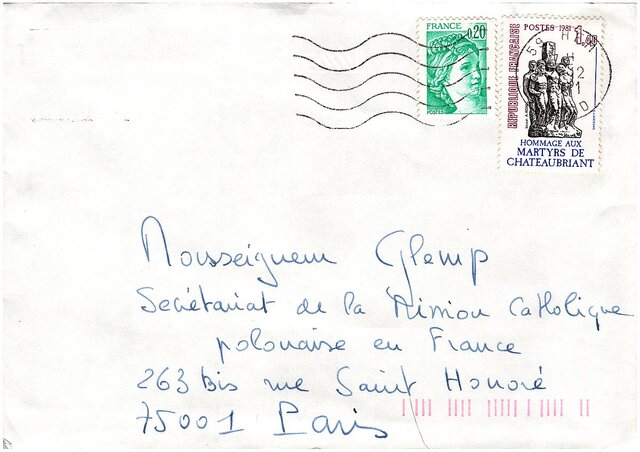 FRANCE 0,20
POSTES
RÉPUBLIQUE FRANÇAISE
POSTES 1981
HOMMAGE AUX
MARTYRS DE
CHATEAUBRIANT
Monseigneur Glemp
Secrétariat de la Mission Catholique
polonaise en France
263 bis rue Saint Honoré
75001 Paris